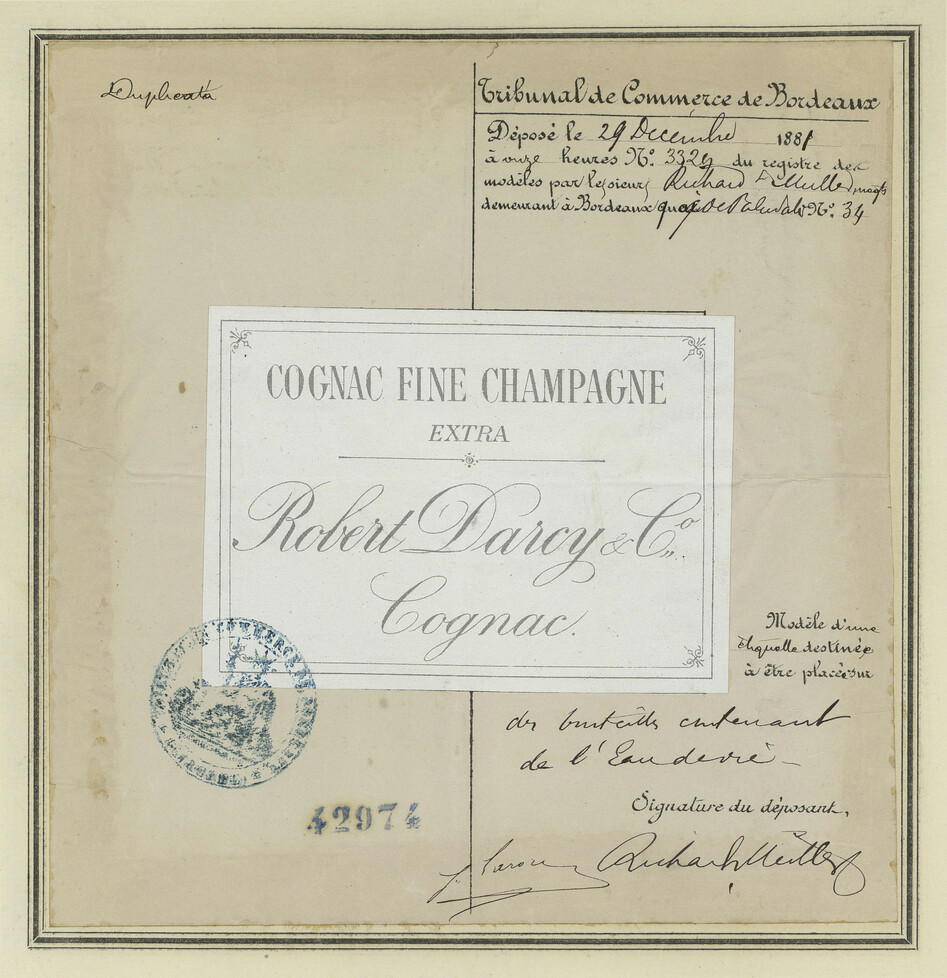 Duplicata
Tribunal de Commerce de Bordeaux
Déposé le 29 Decembre 1881
à onze heures N°. 3329 du registre des
modèles par le sieur Richard & Muller
demeurant à Bordeaux quai de Paludate N°. 34
COGNAC FINE CHAMPAGNE
EXTRA
Robert Darcy & Co.
Cognac.
Modèle d'une
étiquette destinée
à être placée sur
des bouteilles contenant
de l'Eau de vie
Signature du déposant,
Richard & Muller
COMMERCE DE BORDEAUX
42974